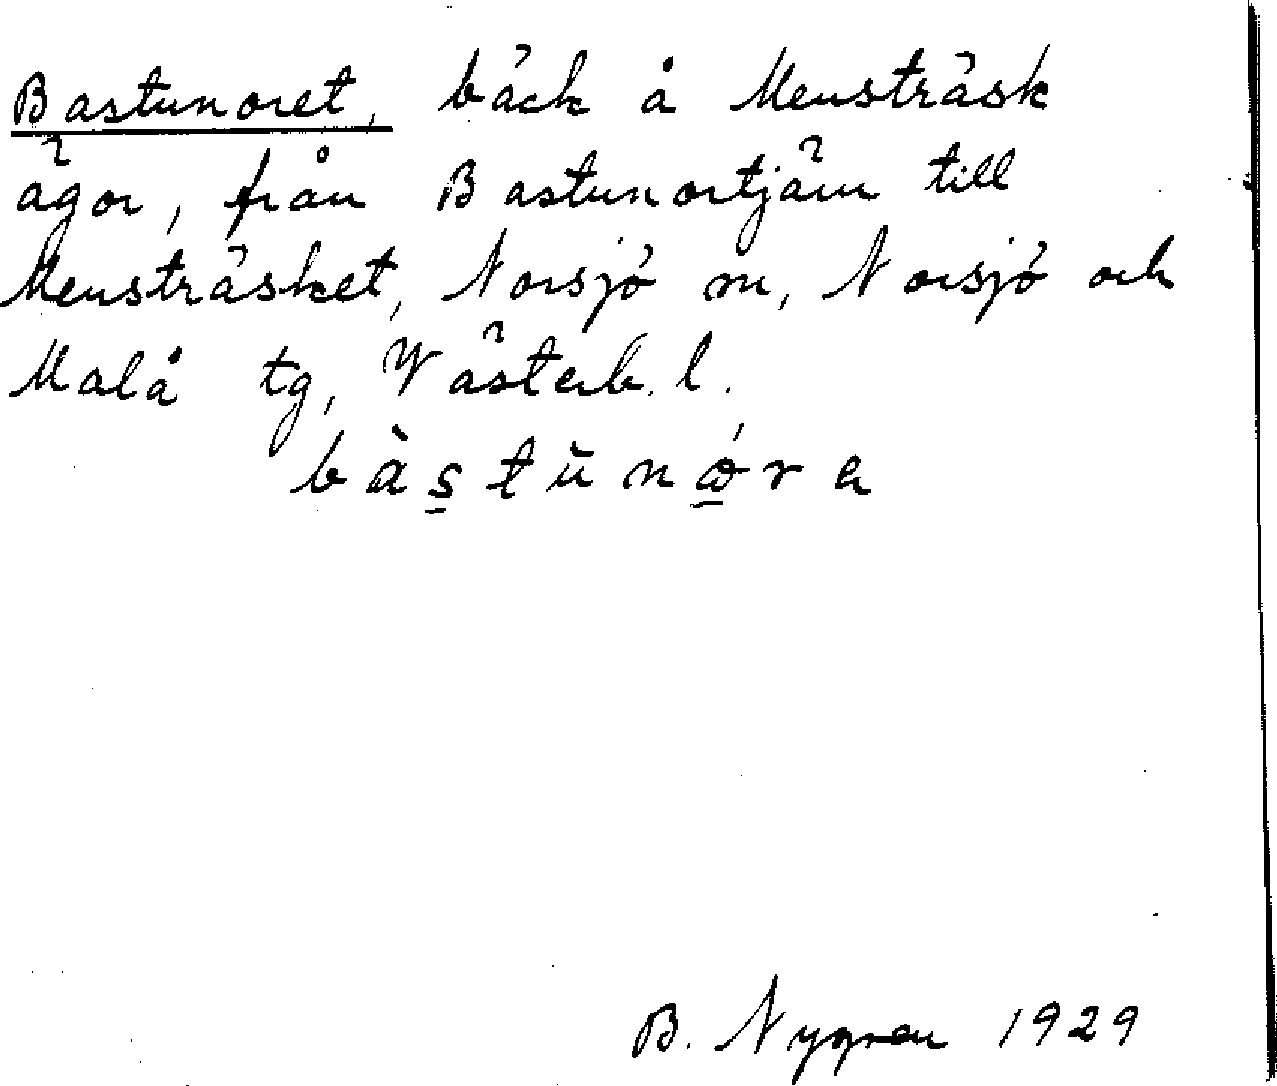 Bastunoret, bäck å Mensträsk
ägor, från Bastunortjärn till
Mensträsket, Norsjö sn, Norsjö och
Malå tg, Västerb. l.
bàs̲tŭnǿ̲ra
B. Nygren 1929